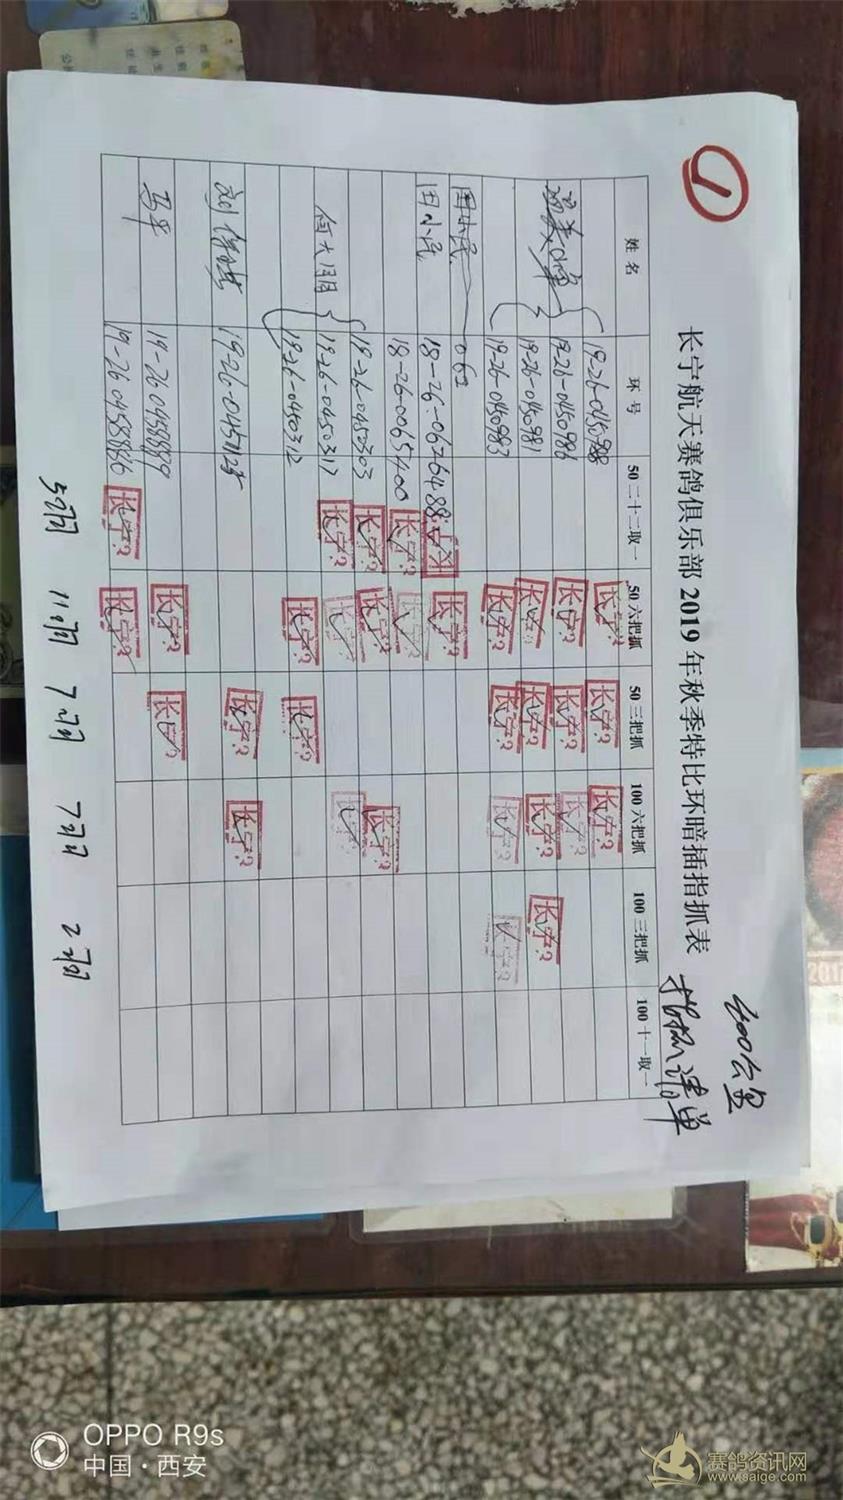 ①
400公里
长宁航天赛鸽俱乐部2019年秋季特比环暗插指抓表
指抓清单
姓名 环号 50二十二取一 50六把抓 50三把抓 100六把抓 100三把抓 100十一取一
19-26-0450988 长宁? 长宁? 长宁?
19-26-0450986 长宁? 长宁? 长宁?
19-26-0450981 长宁? 长宁? 长宁? 长宁?
19-26-0450983 长宁? 长宁? 长宁? 长宁?
田小民 062
田小民 18-26-0626488 长宁? 长宁?
18-26-0065400 长宁? 长宁?
19-26-0450303 长宁? 长宁? 长宁?
19-26-0450317 长宁? 长宁? 长宁?
19-26-0450312 长宁? 长宁?
19-26-0451125 长宁? 长宁?
马军 19-26-0458889 长宁? 长宁?
19-26-0458886 长宁? 长宁?
5羽 11羽 7羽 7羽 2羽
OPPO R9s
中国·西安
赛鸽资讯网
www.saige.com